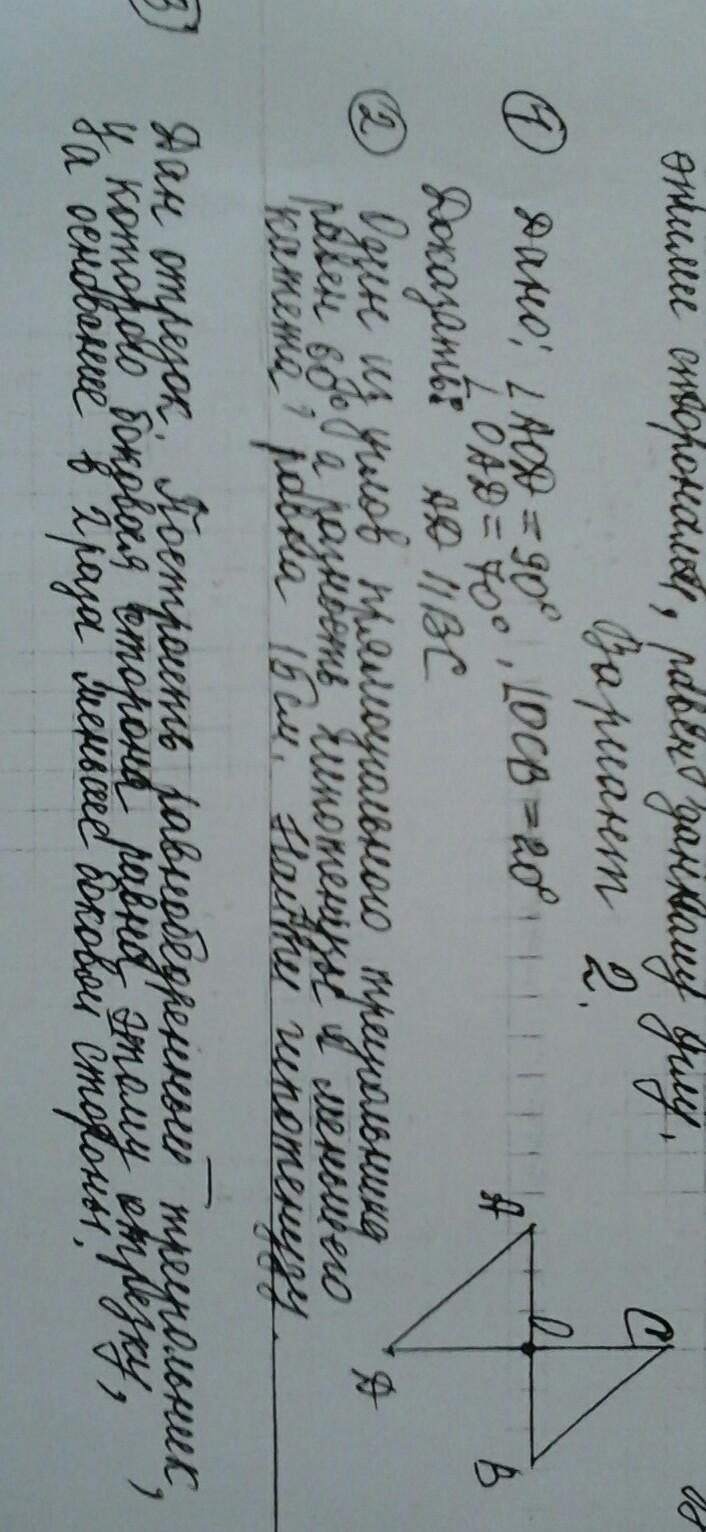 этими сторонами, равен данному углу.
Вариант 2.
① Дано: ∠AOD = 90°
∠OAD = 70°, ∠OCB = 20°
Доказать: AD || BC
A
O
C
B
D
② Один из углов прямоугольного треугольника
равен 60°, а разность гипотенузы и меньшего
катета, равна 15 см. Найти гипотенузу.
3
Дан отрезок. Построить равнобедренный треугольник,
у которого боковая сторона равна этому отрезку,
а основание в 2 раза меньше боковой стороны.